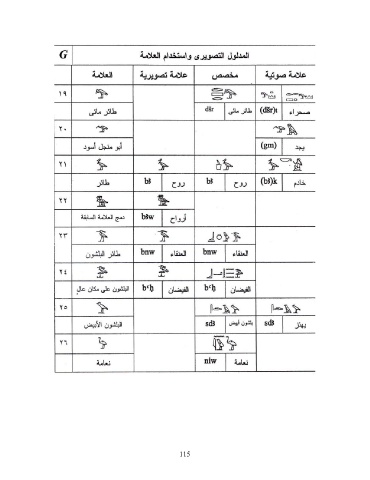 G المدلول التصويرى واستخدام العلامة
العلامة علامة تصويرية مخصص علامة صوتية
١٩
طائر مائى dšr طائر مائى (dšr)t صحراء
٢٠
أبو منجل أسود (gm) يجد
٢١
طائر bꜣ روح bꜣ روح (bꜣ)k خادم
٢٢
دمج العلامة السابقة bꜣw أرواح
٢٣
طائر البلشون bnw العنقاء bnw العنقاء
٢٤
البلشون على مكان عال bꜥḥ الفيضان bꜥḥ الفيضان
٢٥
البلشون الأبيض sdꜣ بلشون أبيض sdꜣ يهتز
٢٦
نعامة niw نعامة
115